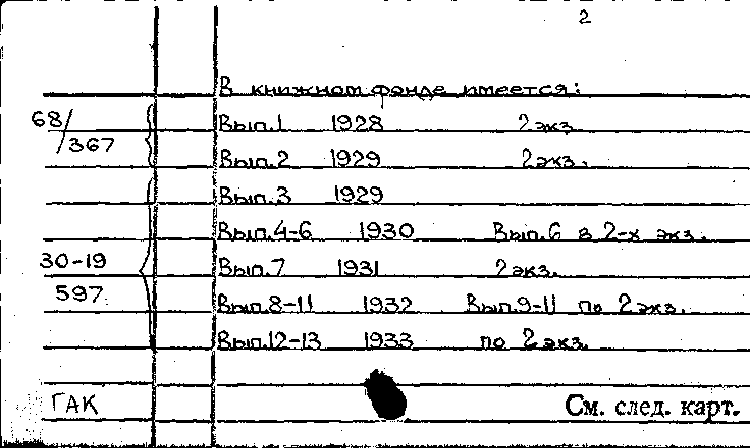 2
В книжном фонде имеется:
68/367
Вып.1 1928 2экз.
Вып.2 1929 2экз.
Вып.3 1929
Вып.4-6 1930 Вып.6 в 2-х экз.
30-19
Вып.7 1931 2экз.
597
Вып.8-11 1932 Вып.9-11 по 2экз.
Вып.12-13 1933 по 2экз.
ГАК
См. след. карт.